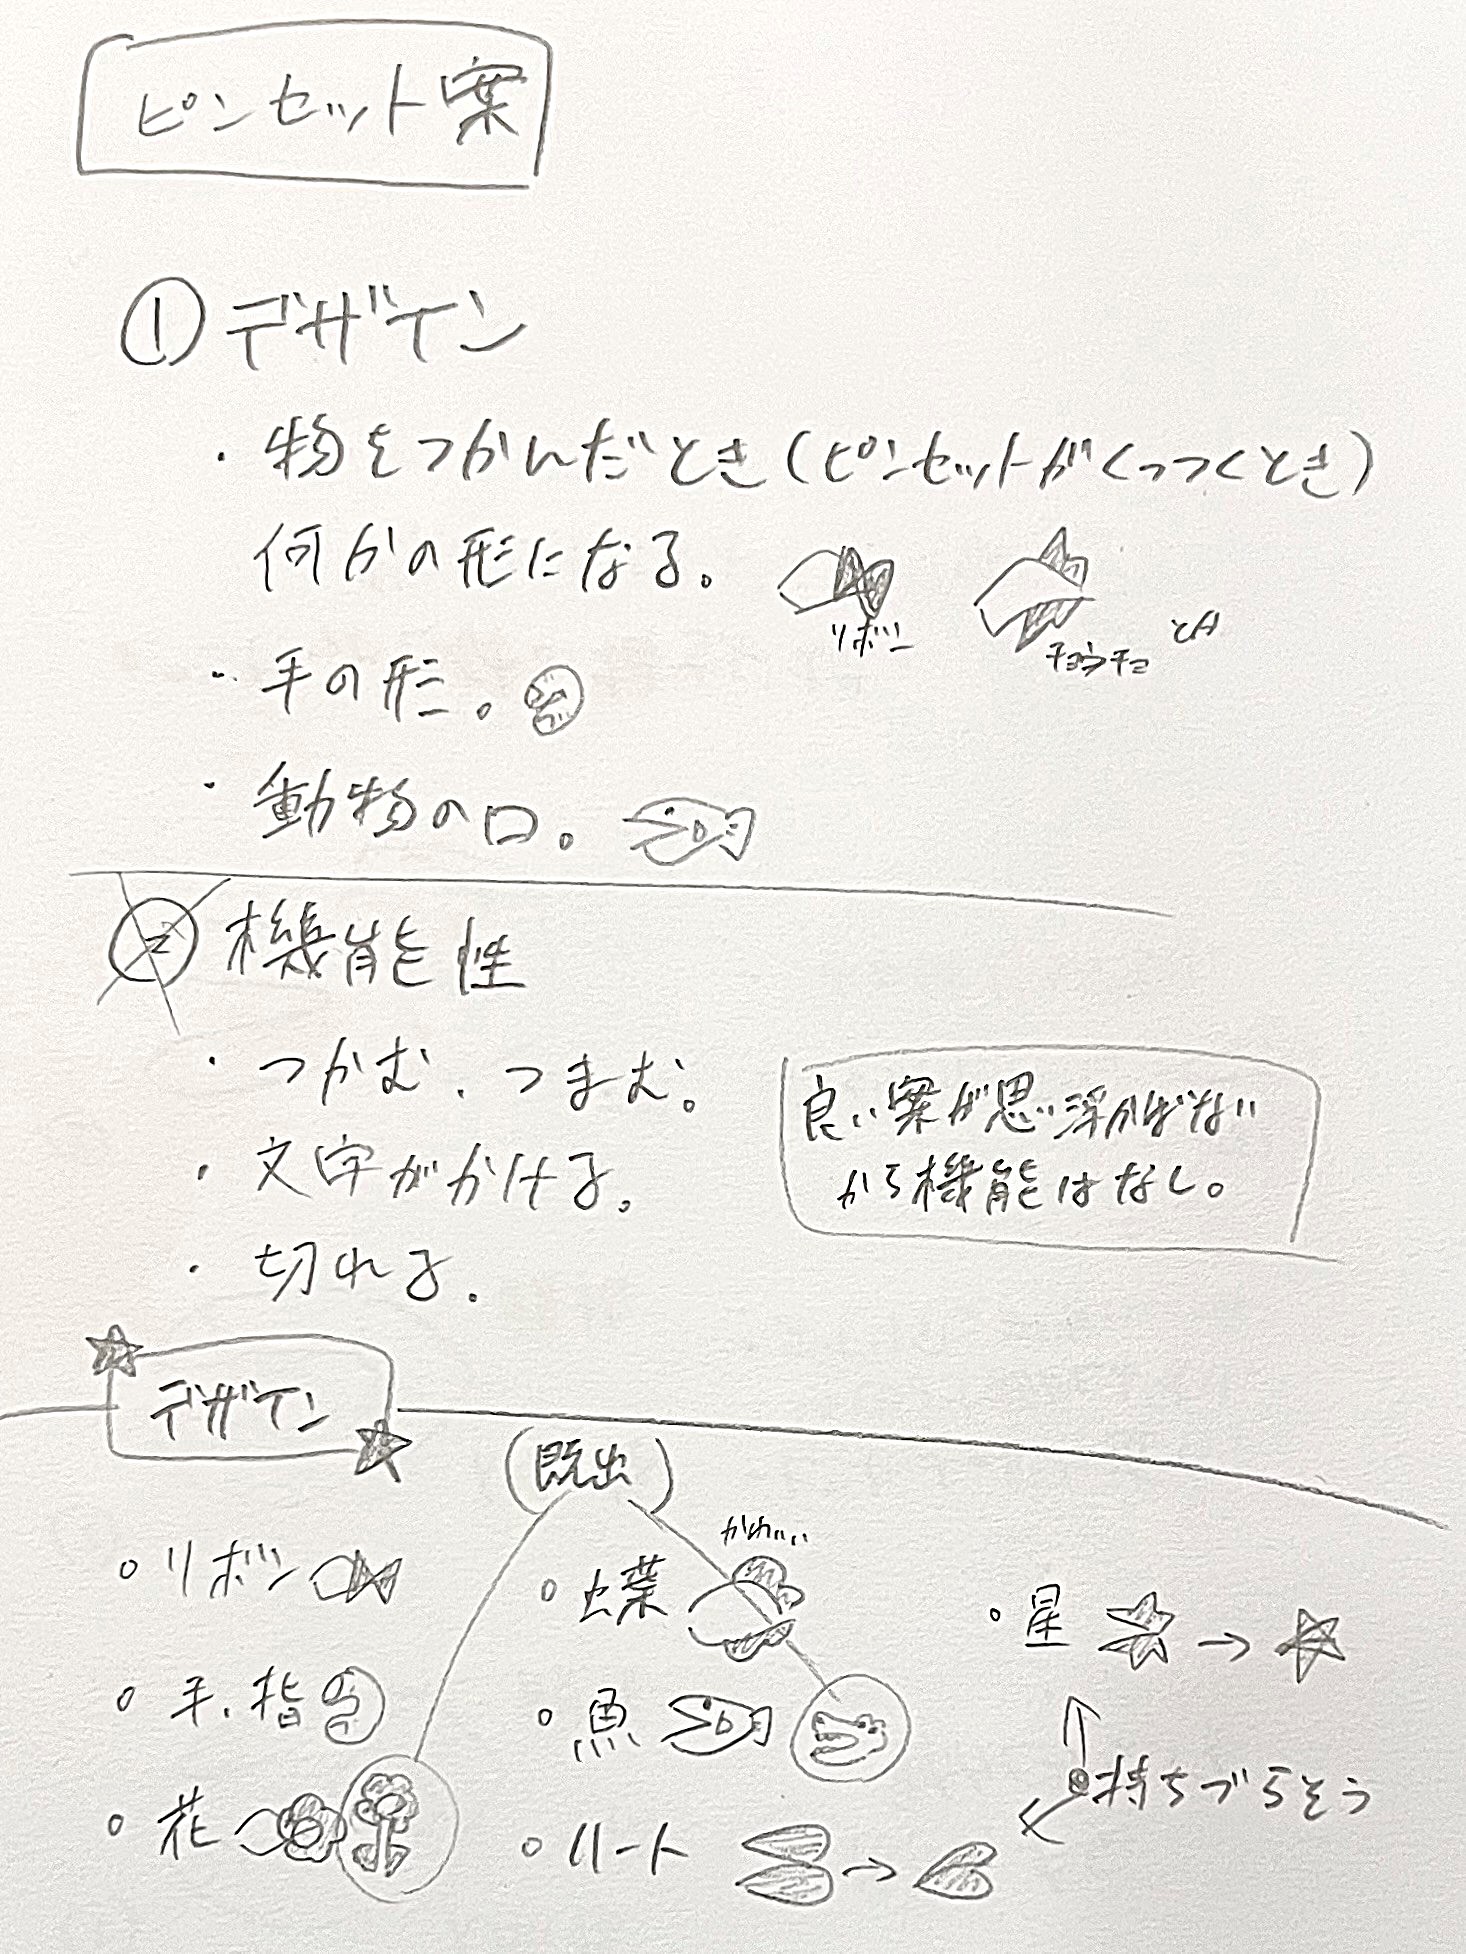 ピンセット案
① デザイン
・物をつかんだとき(ピンセットがくっつくとき)
何かの形になる。
リボン
チョウチョ
とか
・手の形。
・動物の口。
② 機能性
・つかむ、つまむ。
・文字がかける。
・切れる。
良い案が思い浮かばない
から機能はなし。
デザイン
(既出)
かわいい
○リボン
○蝶
○星
○手、指
○魚
持ちづらそう
○花
○ハート